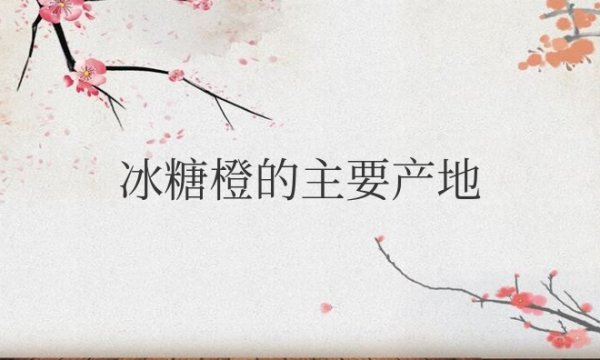 冰糖橙的主要产地